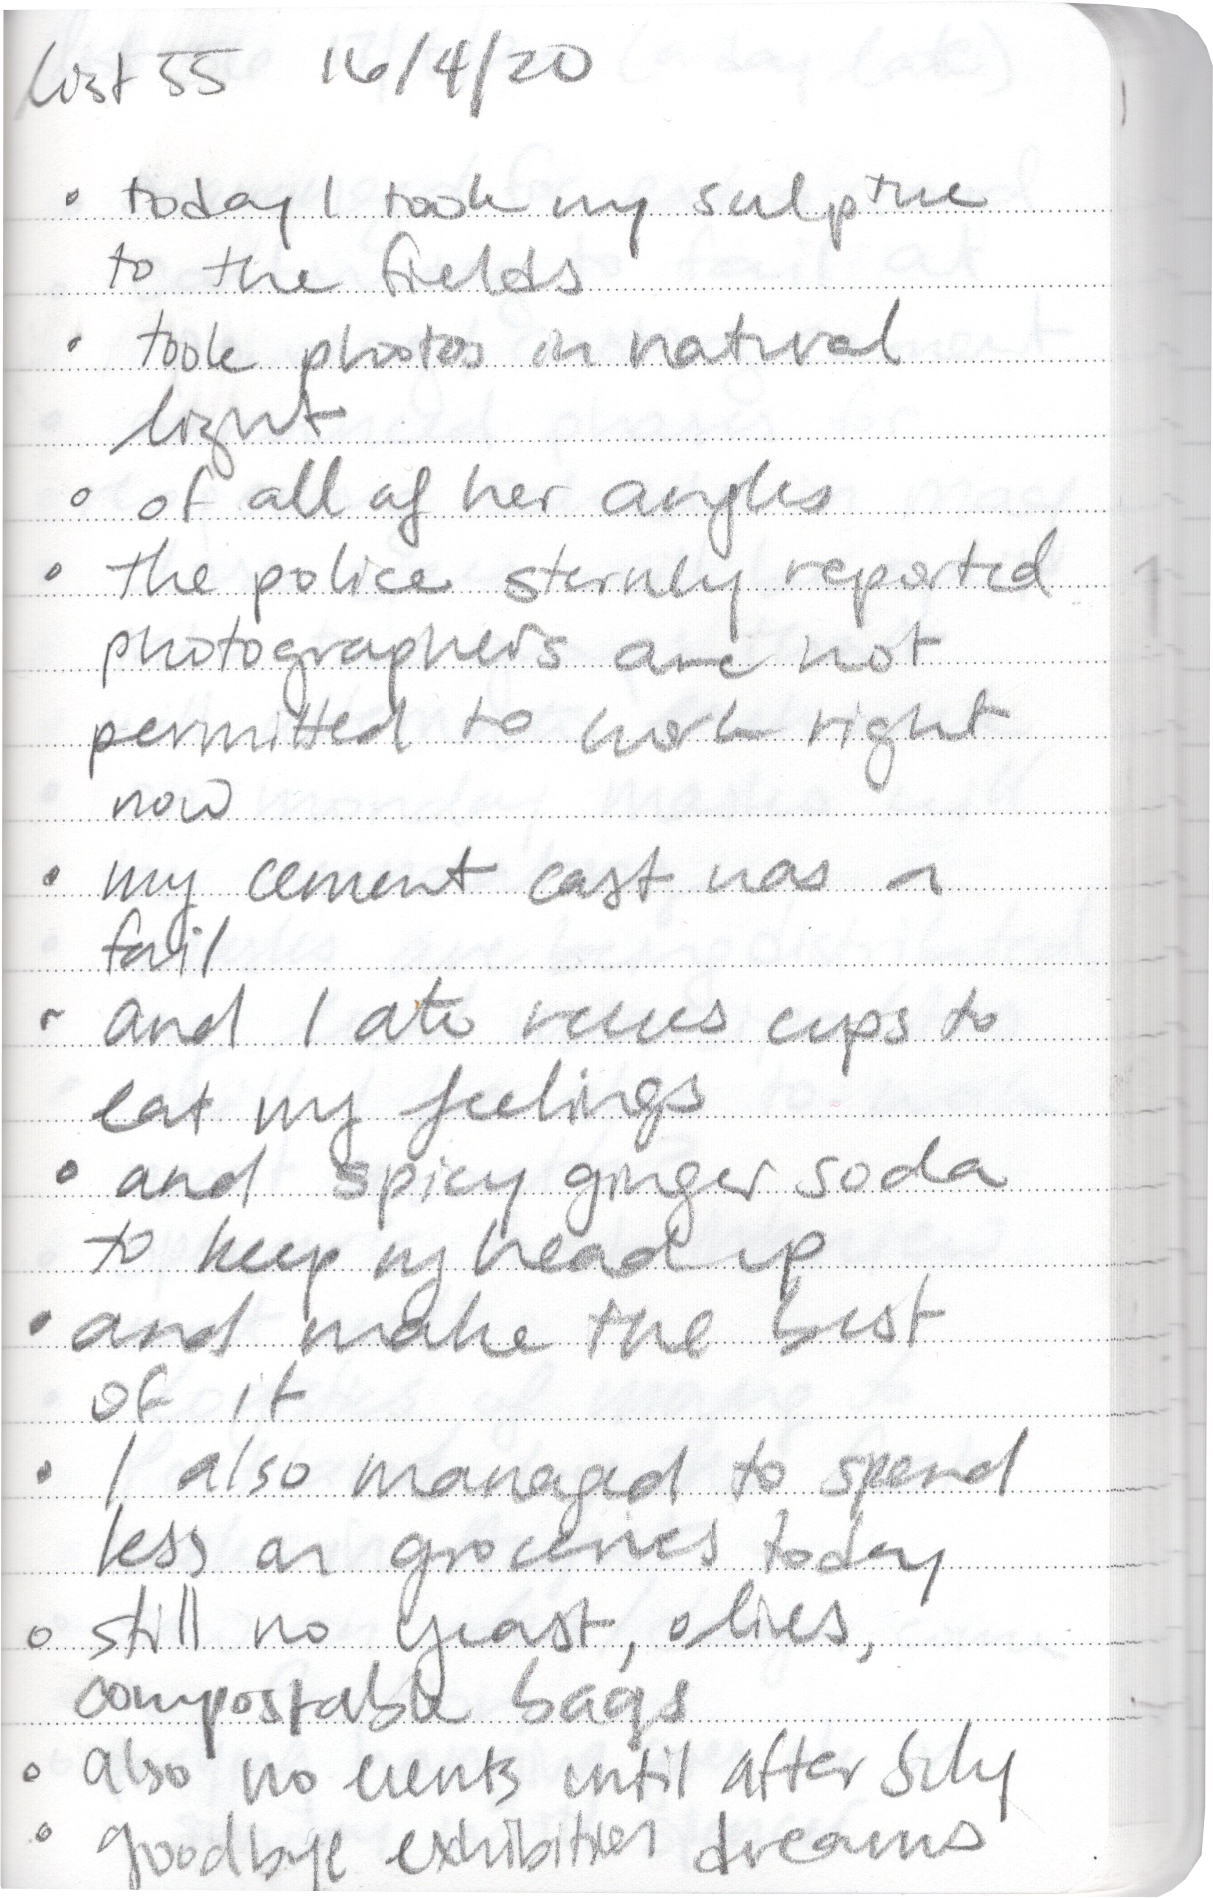 List 55 16/4/20
• today I took my sculpture
to the fields
• took photos in natural
light
• of all of her angles
• the police sternly reported
photographers are not
permitted to work right
now
• my cement cast was a
fail
• and I ate reeses cups to
eat my feelings
• and spicy ginger soda
to keep my head up
• and make the best
of it
• I also managed to spend
less on groceries today
• still no yeast, olives,
compostable bags
• also no events until after July
• goodbye exhibition dreams